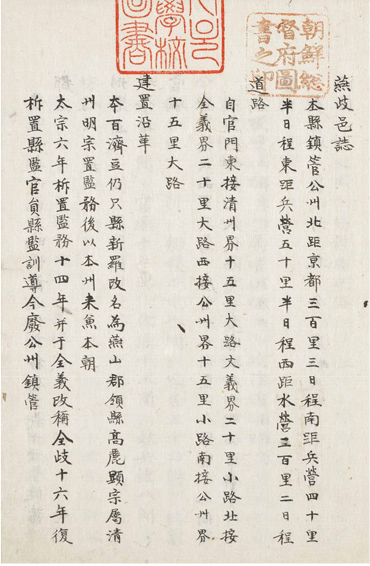 燕歧邑誌
本縣鎭管公州北距京都三百里三日程南距兵營四十里
半日程東距兵營五十里半日程西距水營三百里二日程
道路
自官門東接淸州界十五里大路文義界二十里小路北接
全義界二十里大路西接公州界十五里小路南接公州界
十五里大路
建置沿革
本百濟豆仍只縣新羅改名為燕山郡領縣高麗顯宗屬清
州明宗置監務後以本州来兼本朝
太宗六年析置監務十四年并于全義改稱全歧十六年復
析置縣監官員縣監訓導今廢公州鎭管
朝鮮総
督府圖
書之印